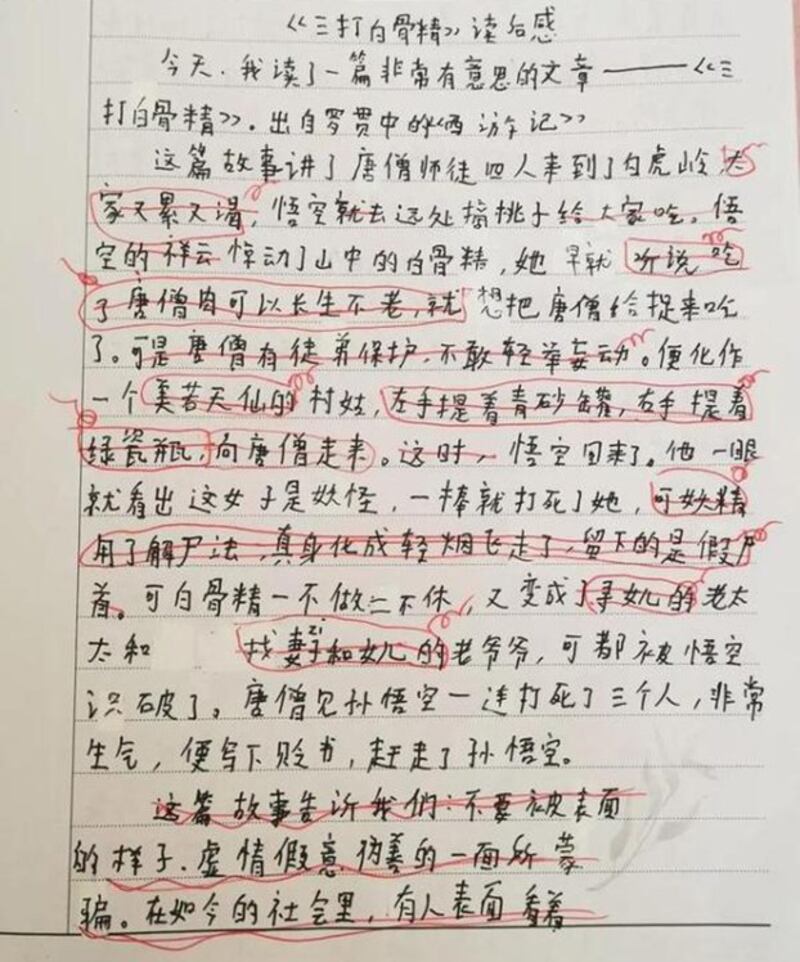 《三打白骨精》读后感
今天,我读了一篇非常有意思的文章——《三
打白骨精》.出自罗贯中的《西游记》
这篇故事讲了唐僧师徒四人来到了白虎岭,大
家又累又渴,悟空就去远处摘桃子给大家吃。悟
空的祥云惊动了山中的白骨精,她早就听说吃
了唐僧肉可以长生不老,就想把唐僧给捉来吃
了。可是唐僧有徒弟保护,不敢轻举妄动。便化作
一个美若天仙的村姑,左手提着青砂罐,右手提着
绿瓷瓶,向唐僧走来。这时,悟空回来了。他一眼
就看出这女子是妖怪,一棒就打死了她,可妖精
用了解尸法,真身化成轻烟飞走了,留下的是假尸
首。可白骨精一不做二不休,又变成了寻女儿的老太
太和 找妻子和女儿的老爷爷,可都被悟空
zi
识破了。唐僧见孙悟空一连打死了三个人,非常
生气,便写下贬书,赶走了孙悟空。
这篇故事告诉我们:不要被表面
的样子、虚情假意伪善的一面所蒙
骗。在如今的社会里,有人表面看着